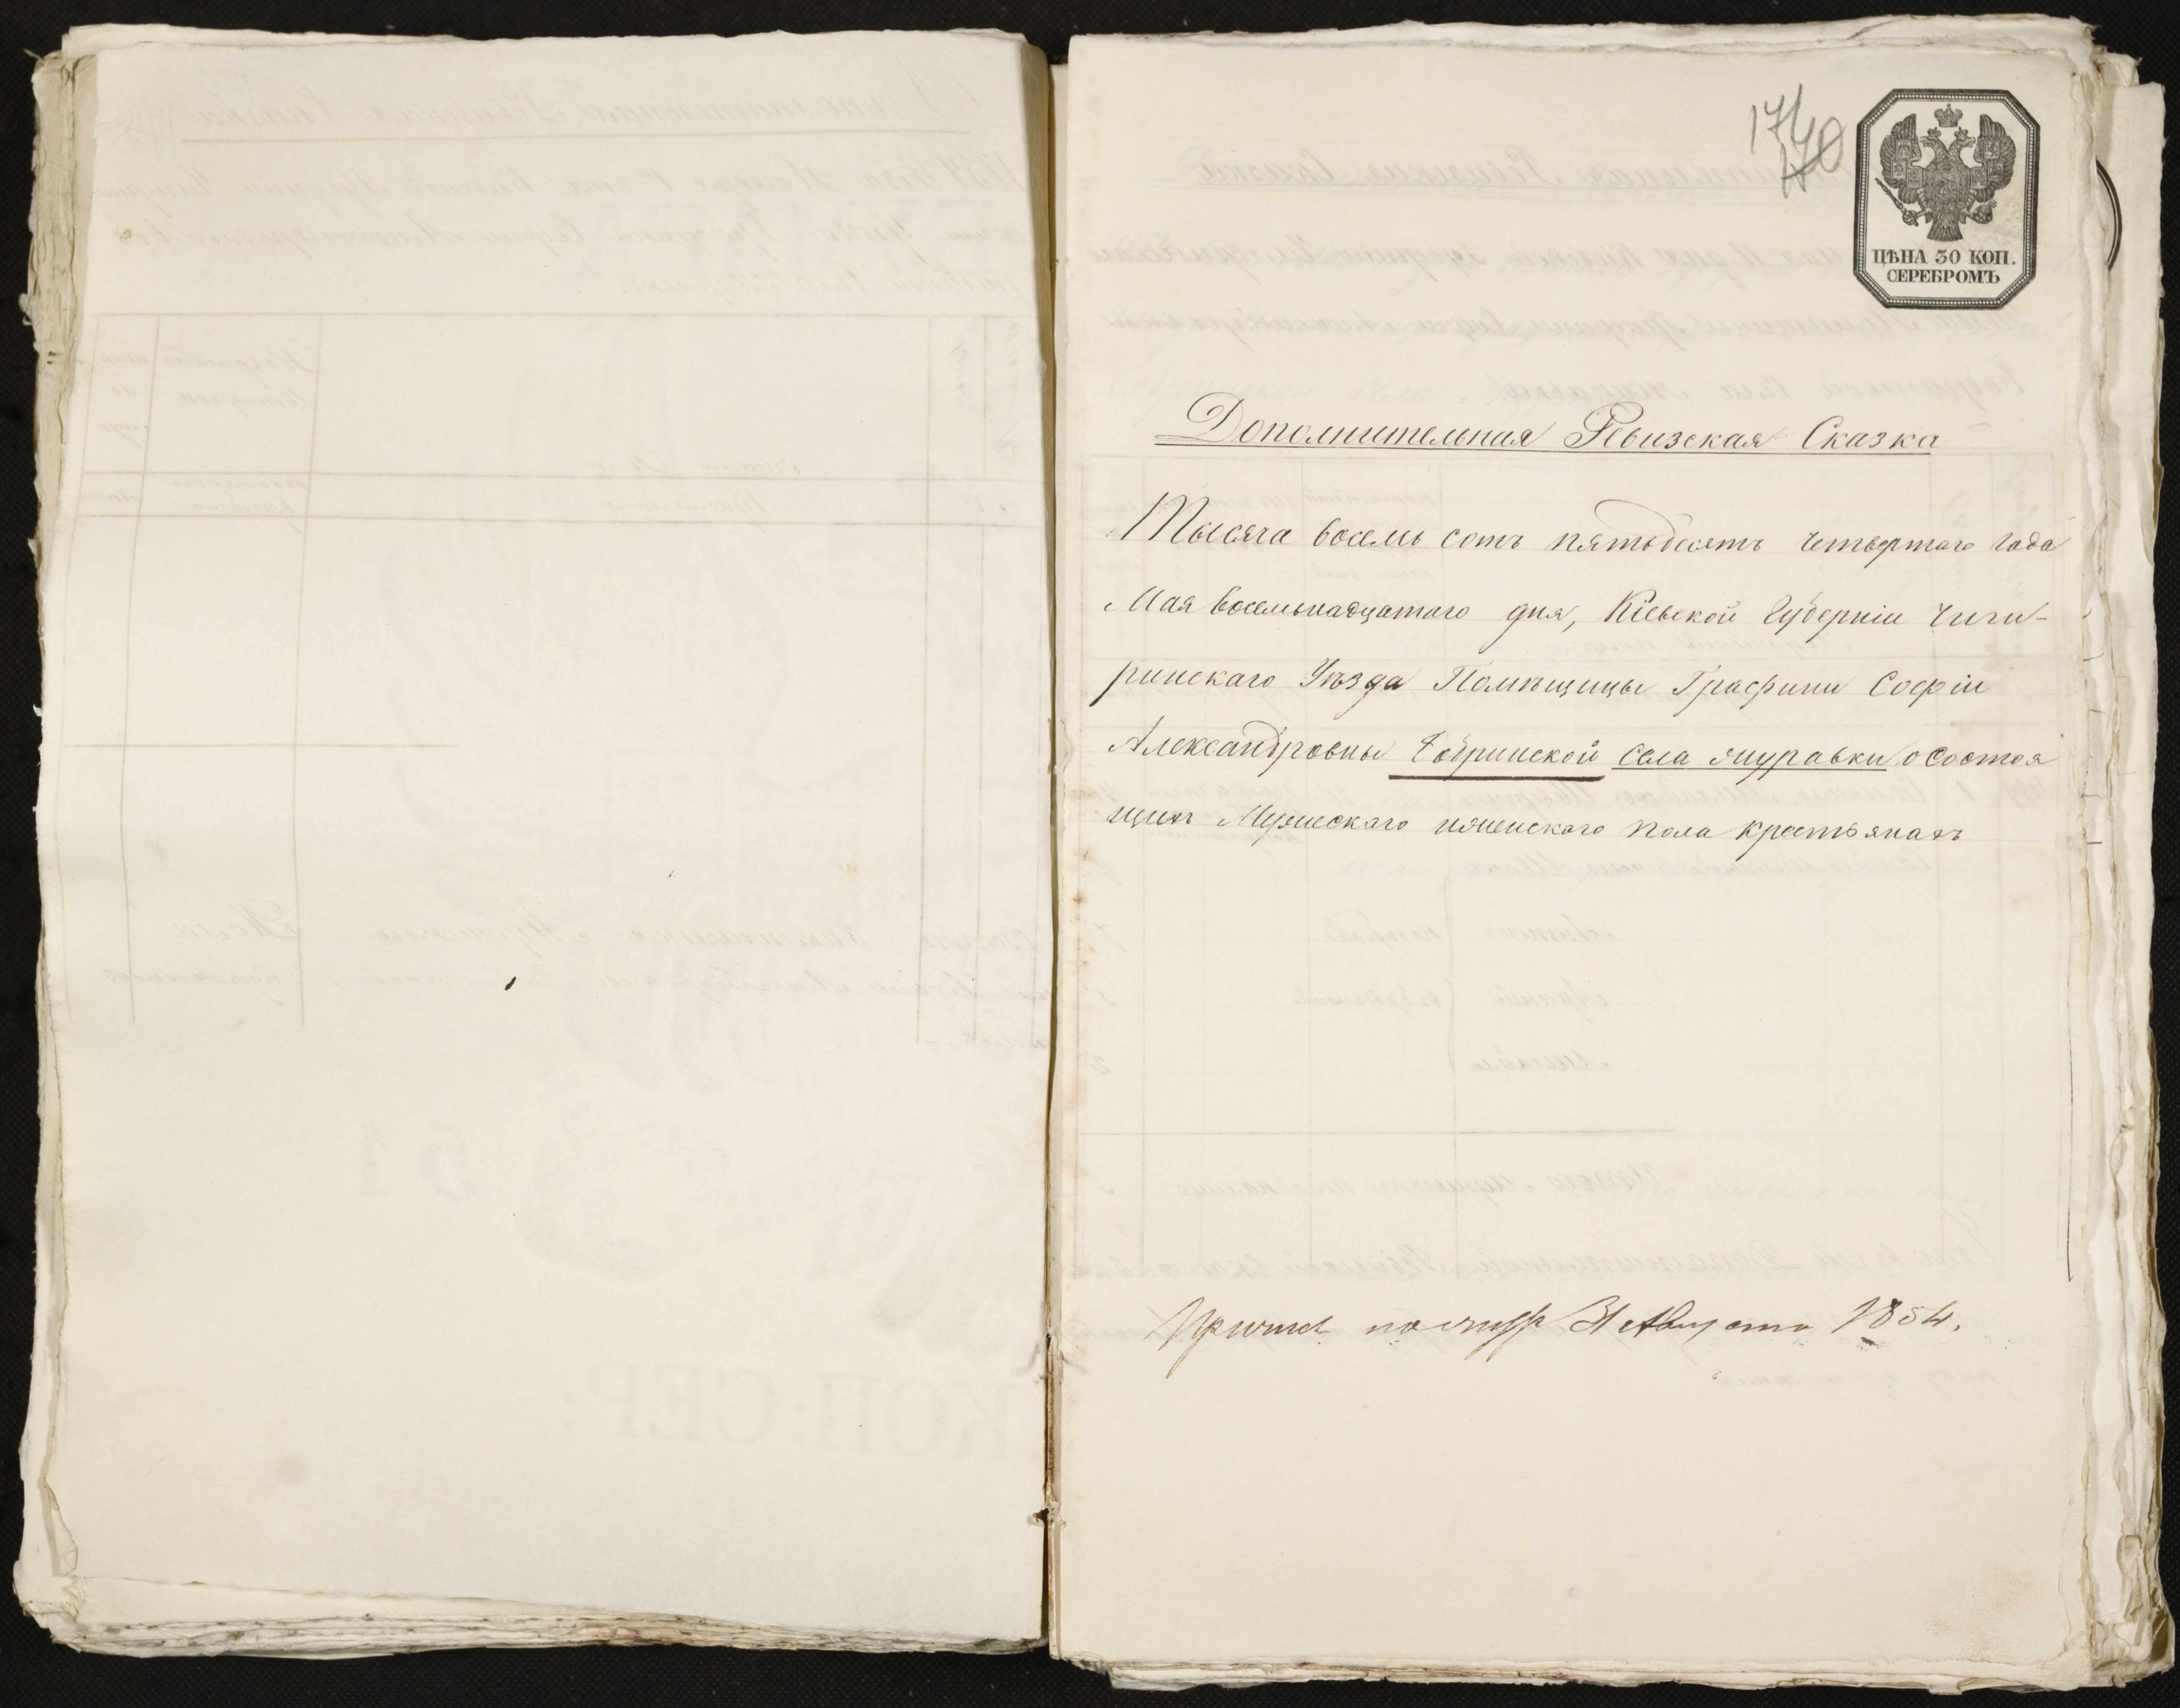 ЦѢНА 30 КОП.
СЕРЕБРОМЪ
Дополнительная Ревизская Сказка
Тысяча восемь сотъ пятьдесятъ четвертаго года
Мая восемьнадцатаго дня, Кіевской Губерніи Чиги-
ринскаго Уѣзда Помѣщицы Графини Софіи
Александровны Бобринской села Журавки о состоя
щихъ Мужескаго иженскаго пола крестьянахъ
31 Августа 1854.